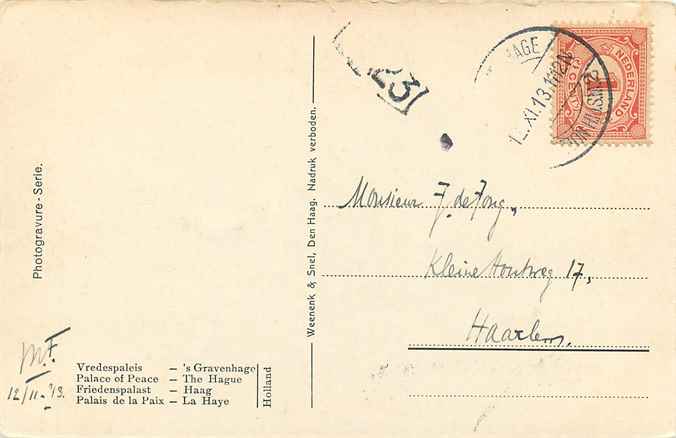 Photogravure-Serie.
M.F.
12/11-'13.
Vredespaleis — 's Gravenhage
Palace of Peace — The Hague
Friedenspalast — Haag
Palais de la Paix — La Haye
Holland
Weenenk & Snel, Den Haag. Nadruk verboden.
23
HAGE
12.XI.13.11-12N
NEDERLAND
Monsieur J. de Jong,
Kleine Houtweg 17,
Haarlem.